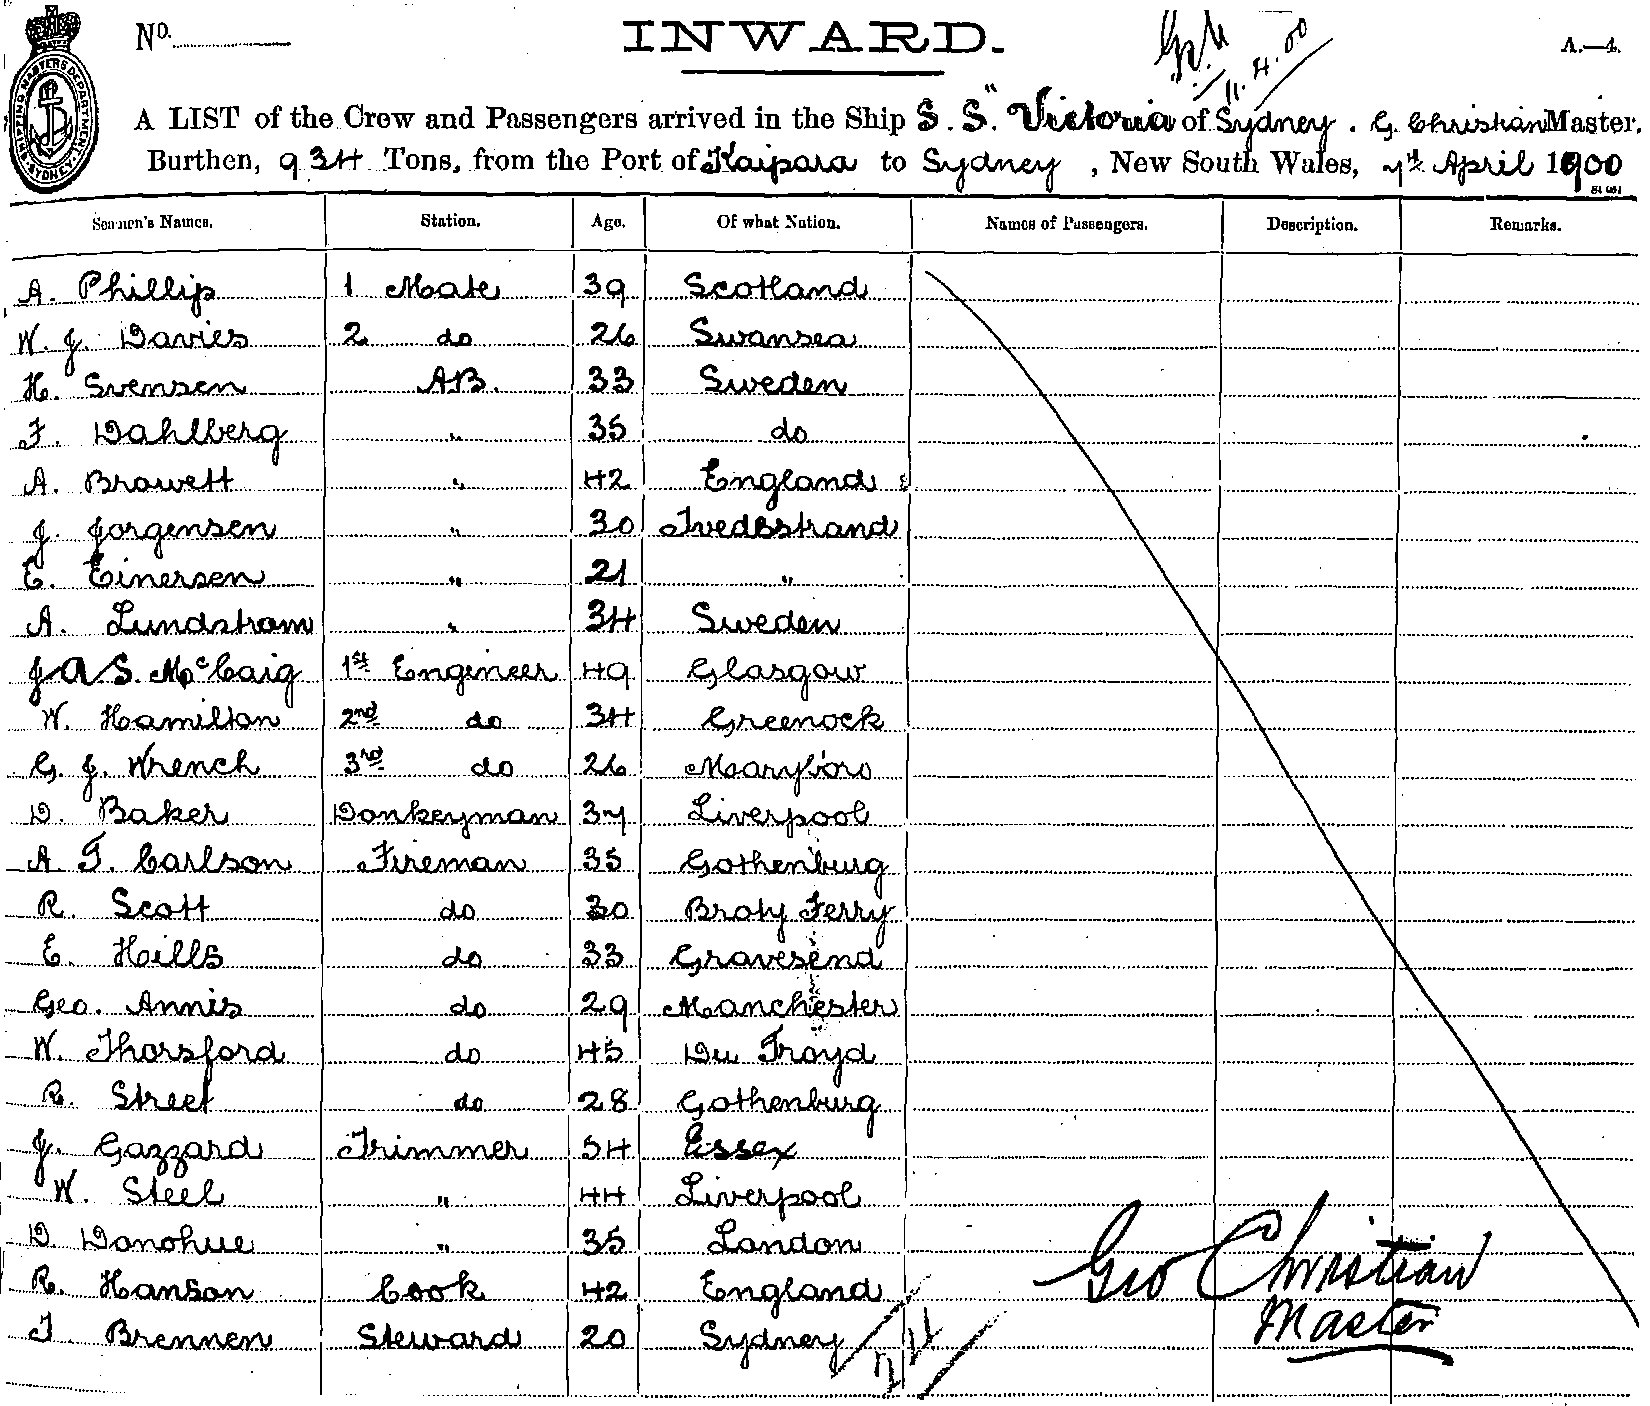 No.
INWARD.
11.4.00
A.—4.
SHIPPING MASTERS DEPARTMENT SYDNEY
A LIST of the Crew and Passengers arrived in the Ship S.S. "Victoria of Sydney. G. Christian Master,
Burthen, 934 Tons, from the Port of Kaipara to Sydney, New South Wales, 7th April 1900
Seamen's Names. Station. Age. Of what Nation. Names of Passengers. Description. Remarks.
A. Phillip 1 Mate 39 Scotland
W. J. Davies 2 do 26 Swansea
H. Svensen AB. 33 Sweden
F. Dahlberg " 35 do
A. Browett " 42 England
J. Jorgensen " 30 Tvedestrand
E. Einersen " 21 "
A. Lundstrom " 34 Sweden
JAS. McCaig 1st Engineer 49 Glasgow
W. Hamilton 2nd do 34 Greenock
G. J. Wrench 3rd do 26 Maryboro
D. Baker Donkeyman 37 Liverpool
A. F. Carlson Fireman 35 Gothenburg
R. Scott do 30 Broty Ferry
E. Hills do 33 Gravesend
Geo. Annis do 29 Manchester
W. Thorsford do 45 Du Troyd
R. Street do 28 Gothenburg
J. Gazzard Trimmer 54 Essex
W. Steel " 44 Liverpool
D. Donohue " 35 London
R. Hanson Cook 42 England
T. Brennen Steward 20 Sydney
Geo Christian
Master